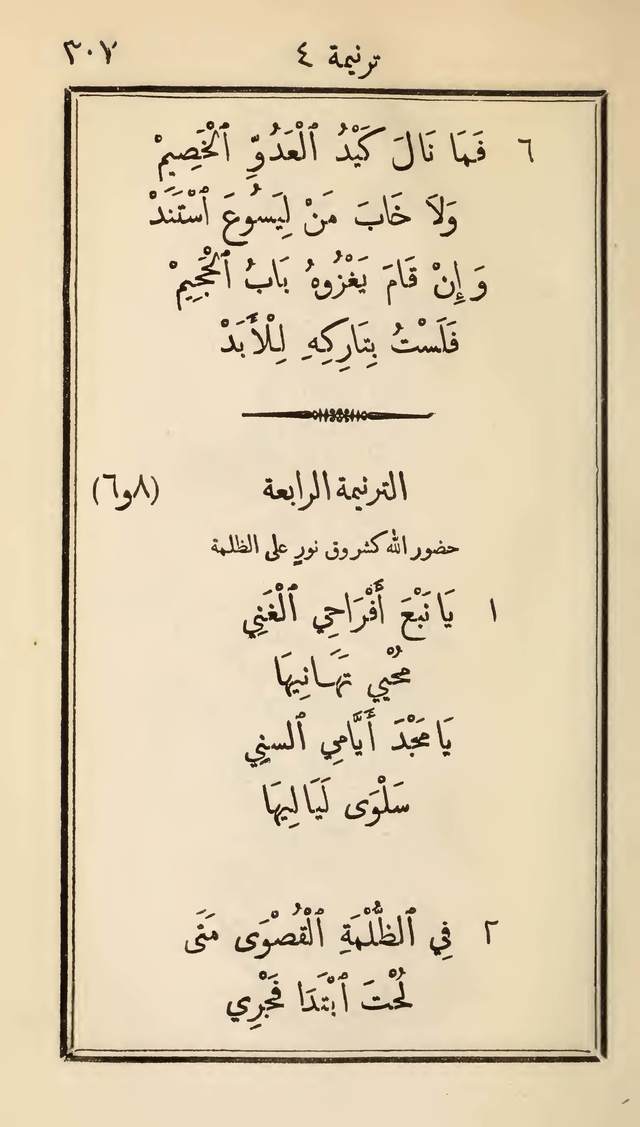 ترنيمة ٤ ٣٠٧
٦ فَمَا نَالَ كَيْدُ ٱلْعَدُوِّ ٱلْخَصِيمْ
وَلَا خَابَ مَنْ لِيَسُوعَ ٱسْتَنَدْ
وَإِنْ قَامَ يَغْزُوهُ بَابُ ٱلْجَحِيمْ
فَلَسْتُ بِتَارِكِهِ لِلْأَبَدْ
الترنيمة الرابعة (٨ و٦)
حضور الله كشروق نورٍ على الظلمة
١ يَا نَبْعَ أَفْرَاحِي ٱلْغَنِي
مُحْيِي تَهَانِيهَا
يَا مَجْدَ أَيَّامِي ٱلسنِي
سَلْوَى لَيَالِيهَا
٢ فِي ٱلظُّلْمَةِ ٱلْقُصْوَى مَتَى
لُحْتَ ٱبْتَدَا فَجْرِي